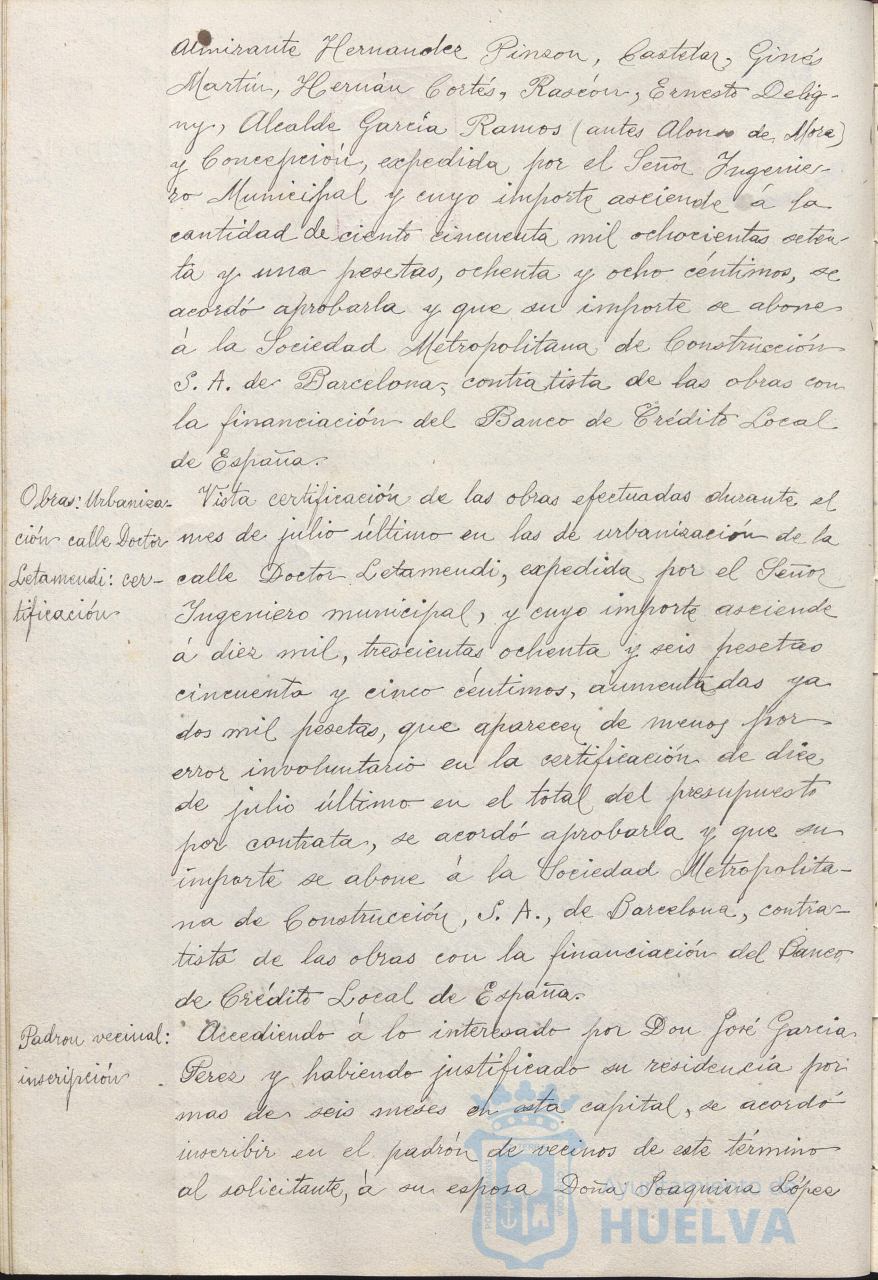 Almirante Hernandez Pinzon, Castelar, Ginés
Martín, Hernán Cortés, Rascón, Ernesto Delig-
ny, Alcalde García Ramos (antes Alonso de Mora)
y Concepción, expedida por el Señor Ingenie-
ro Municipal y cuyo importe asciende á la
cantidad de ciento cincuenta mil ochocientas seten-
ta y una pesetas, ochenta y ocho céntimos, se
acordó aprobarla y que su importe se abone
á la Sociedad Metropolitana de Construcción
S. A. de Barcelona, contratista de las obras con
la financiación del Banco de Crédito Local
de España.
Obras: Urbaniza-
ción calle Doctor
Letamendi: cer-
tificación
Vista certificación de las obras efectuadas durante el
mes de julio último en las de urbanización de la
calle Doctor Letamendi, expedida por el Señor
Ingeniero municipal, y cuyo importe asciende
á diez mil, trescientas ochenta y seis pesetas
cincuenta y cinco céntimos, aumentadas ya
dos mil pesetas, que aparecen de menos por
error involuntario en la certificación de diez
de julio último en el total del presupuesto
por contrata, se acordó aprobarla y que su
importe se abone á la Sociedad Metropolita-
na de Construcción, S. A., de Barcelona, contra-
tista de las obras con la financiación del Banco
de Crédito Local de España.
Padron vecinal:
inscripción
Accediendo á lo interesado por Don José Garcia
Perez y habiendo justificado su residencia por
mas de seis meses en esta capital, se acordó
inscribir en el padrón de vecinos de este término
al solicitante, á su esposa Doña Joaquina López
Ayuntamiento de
HUELVA